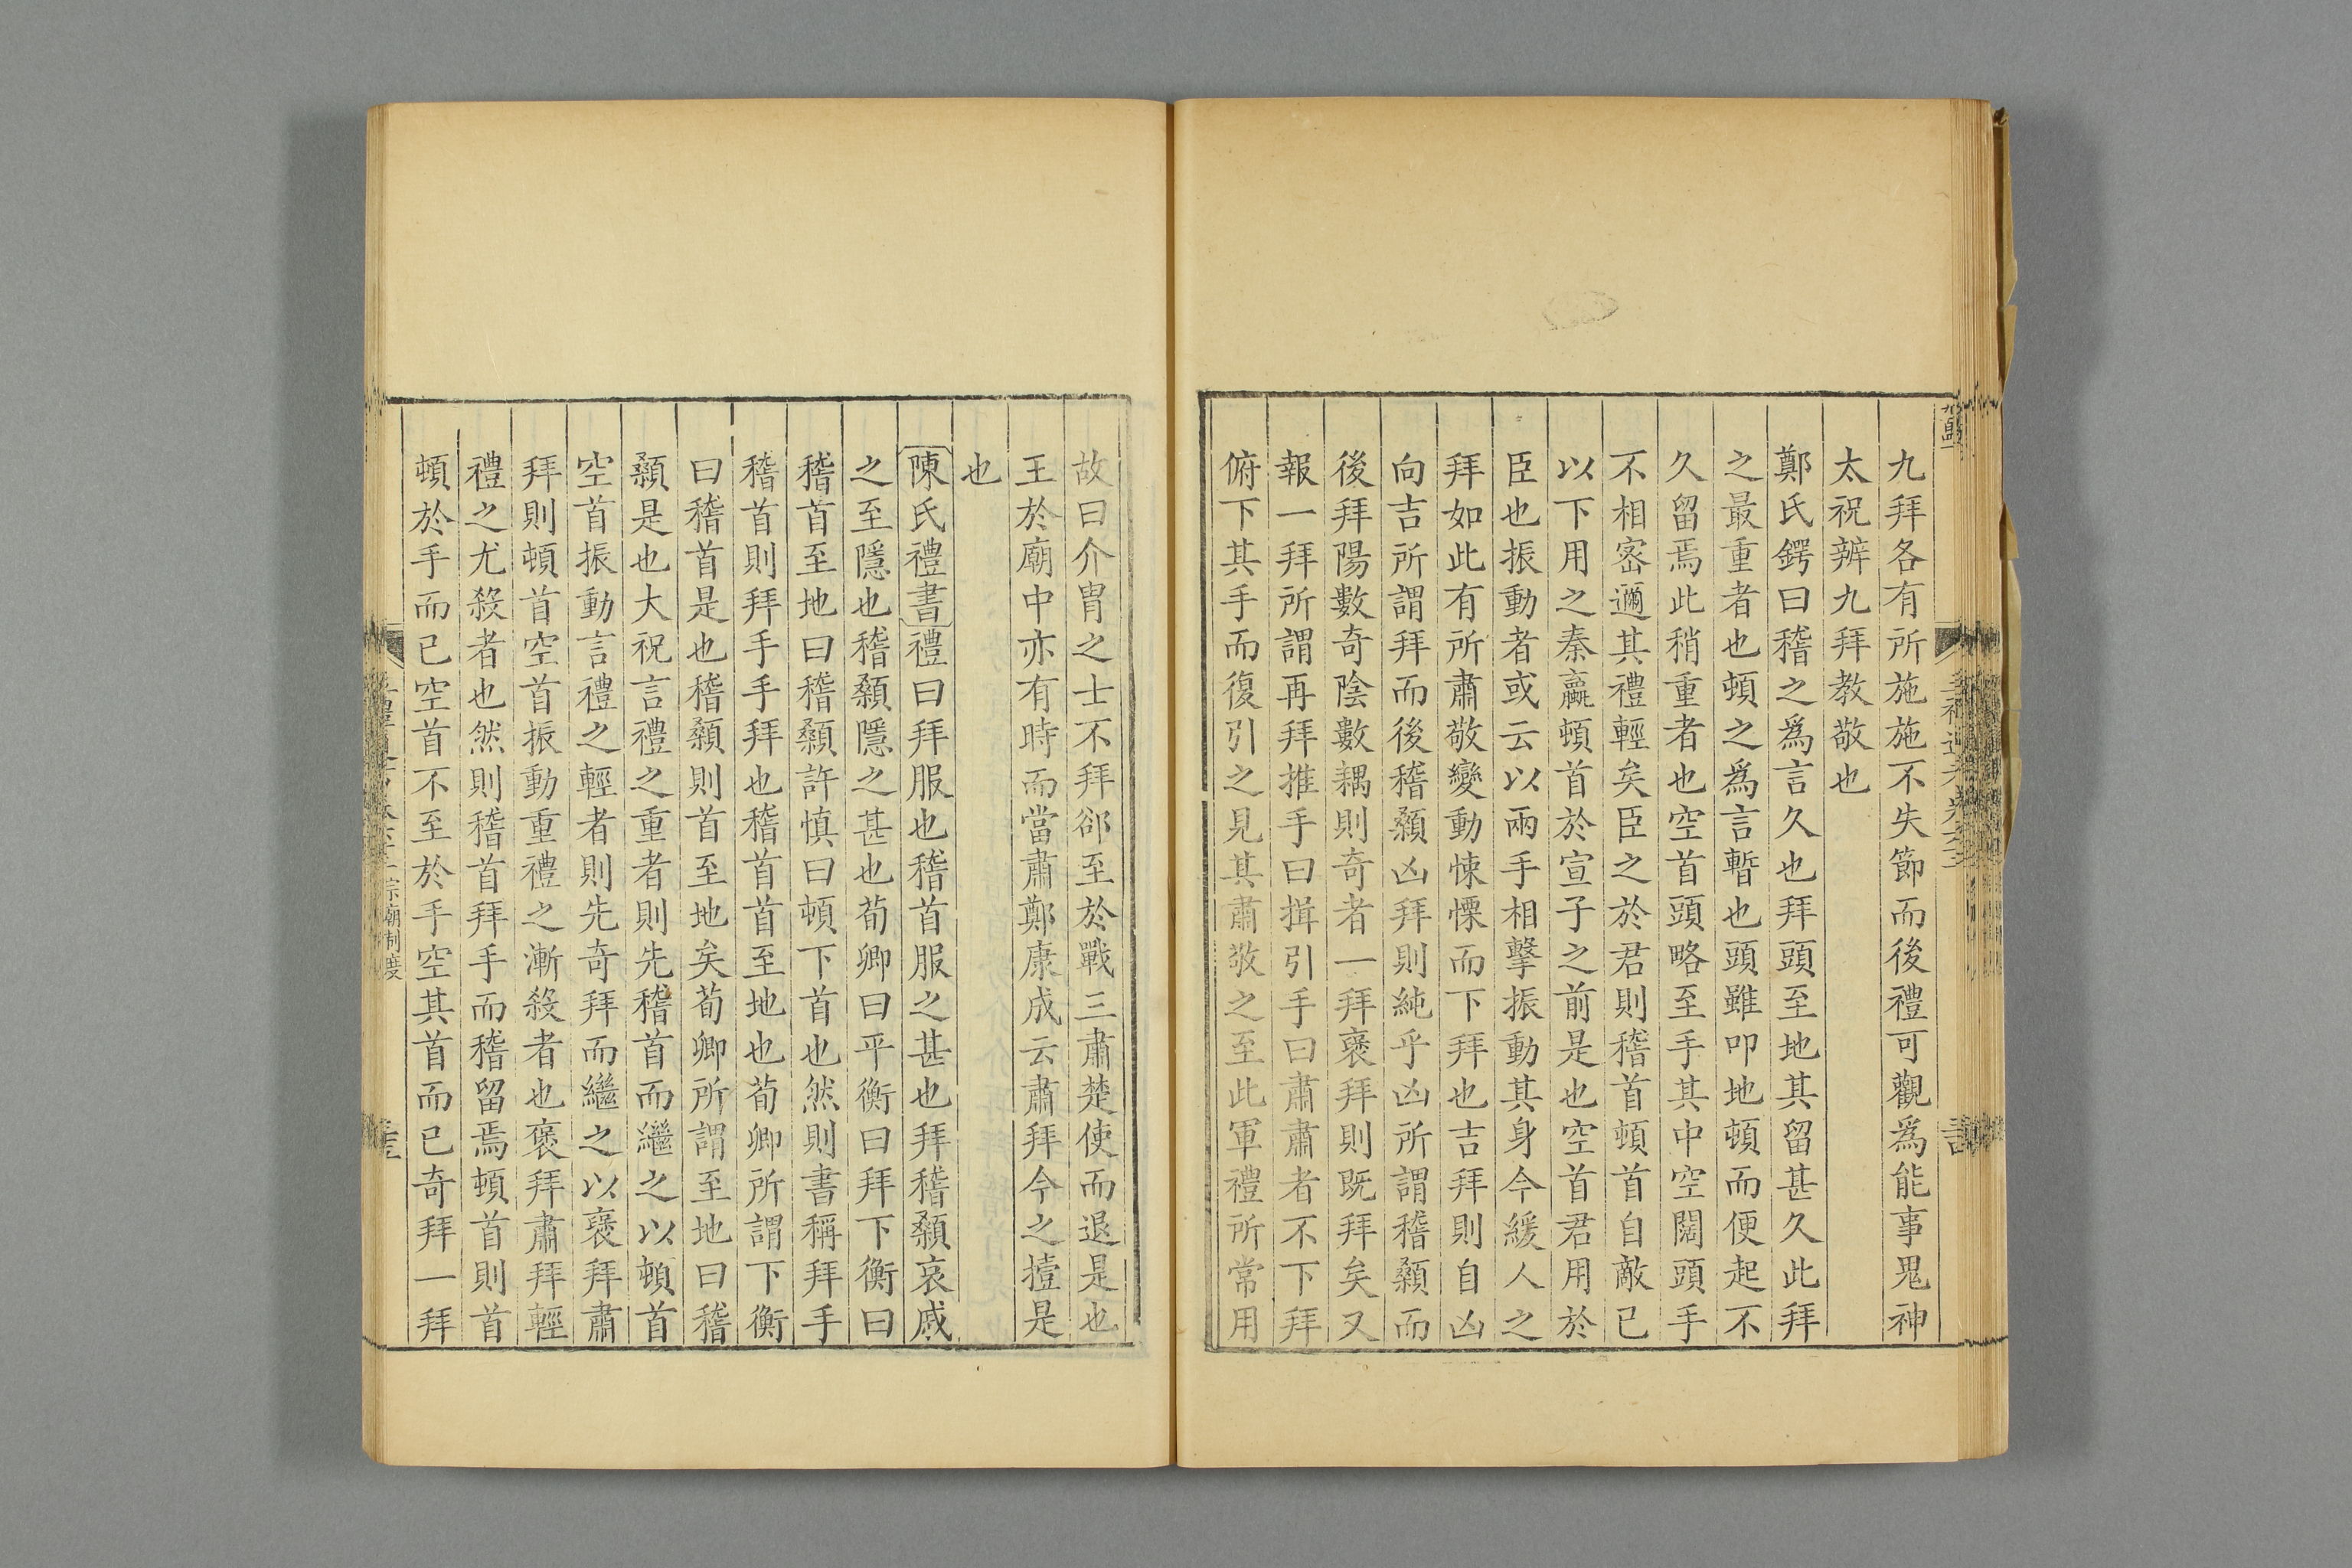 九拜各有所施施不失節而後禮可觀爲能事鬼神
太祝辨九拜教敬也
鄭氏鍔曰稽之爲言久也拜頭至地其留甚久此拜
之最重者也頓之爲言暫也頭雖叩地頓而便起不
久留焉此稍重者也空首頭略至手其中空闊頭手
不相密邇其禮輕矣臣之於君則稽首頓首自敵已
以下用之秦嬴頓首於宣子之前是也空首君用於
臣也振動者或云以兩手相擊振動其身今緩人之
拜如此有所肅敬變動悚慄而下拜也吉拜則自凶
向吉所謂拜而後稽顙凶拜則純乎凶所謂稽顙而
後拜陽數奇陰數耦則奇者一拜褒拜則既拜矣又
報一拜所謂再拜推手曰揖引手曰肅肅者不下拜
俯下其手而復引之見其肅敬之至此軍禮所常用
故曰介胄之士不拜郤至於戰三肅楚使而退是也
王於廟中亦有時而當肅鄭康成云肅拜今之撎是
也
陳氏禮書禮曰拜服也稽首服之甚也拜稽顙哀戚
之至隱也稽顙隱之甚也荀卿曰平衡曰拜下衡曰
稽首至地曰稽顙許慎曰頓下首也然則書稱拜手
稽首則拜手手拜也稽首首至地也荀卿所謂下衡
曰稽首是也稽顙則首至地矣荀卿所謂至地曰稽
顙是也大祝言禮之重者則先稽首而繼之以頓首
空首振動言禮之輕者則先奇拜而繼之以褒拜肅
拜則頓首空首振動重禮之漸殺者也褒拜肅拜輕
禮之尤殺者也然則稽首拜手而稽留焉頓首則首
頓於手而已空首不至於手空其首而已奇拜一拜
宗廟制度